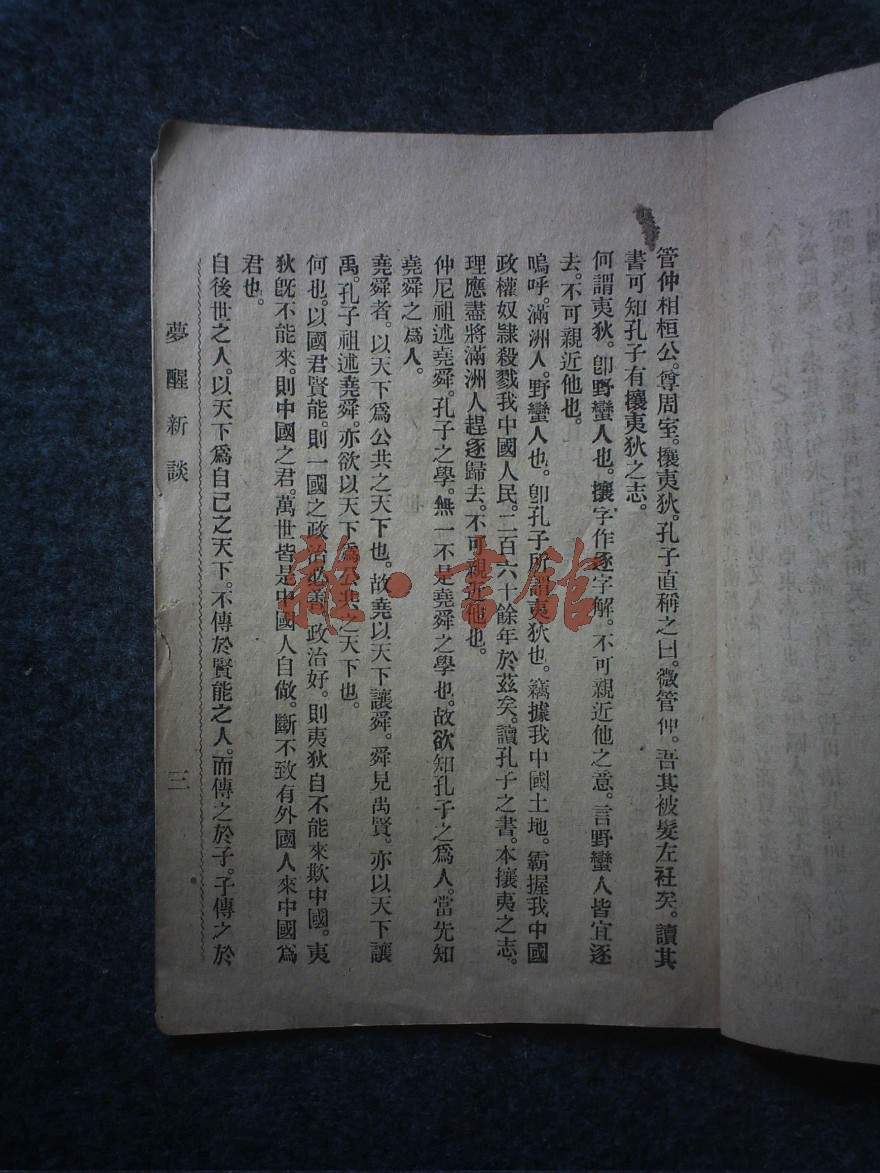 管仲相桓公。尊周室。攘夷狄。孔子直稱之曰。微管仲。吾其被髮左社矣。讀其
書可知孔子有攘夷狄之志。
何謂夷狄。卽野蠻人也。攘字作逐字解。不可親近他之意。言野蠻人皆宜逐
去。不可親近他也。
嗚呼。滿洲人。野蠻人也。卽孔子所謂夷狄也。竊據我中國土地。霸握我中國
政權奴隸殺戮我中國人民。二百六十餘年於茲矣。讀孔子之書。本攘夷之志。
理應盡將滿洲人趕逐歸去。不可親近他也。
仲尼祖述堯舜。孔子之學。無一不是堯舜之學也。故欲知孔子之爲人。當先知
堯舜之爲人。
堯舜者。以天下爲公共之天下也。故堯以天下讓舜。舜見禹賢。亦以天下讓
禹。孔子祖述堯舜。亦欲以天下爲公共之天下也。
何也。以國君賢能。則一國之政治必善。政治好。則夷狄自不能來欺中國。夷
狄旣不能來。則中國之君。萬世皆是中國人自做。斷不致有外國人來中國爲
君也。
自後世之人。以天下爲自己之天下。不傳於賢能之人。而傳之於子。子傳之於
夢醒新談
三
雜·書館